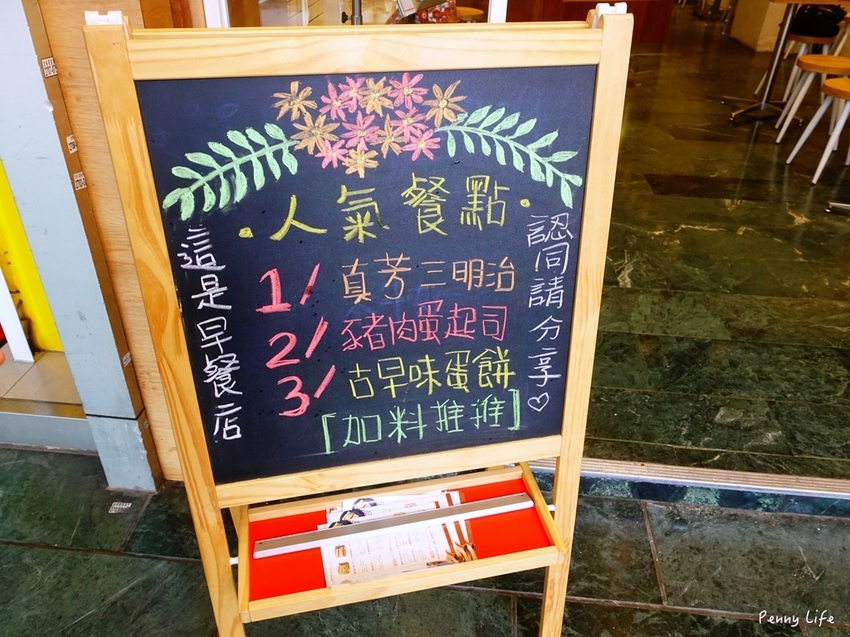 ・人氣餐點・
這是早餐店
1/ 真芳三明治
2/ 豬肉蛋起司
3/ 古早味蛋餅
[加料推推]
認同請分享♡
Penny Life